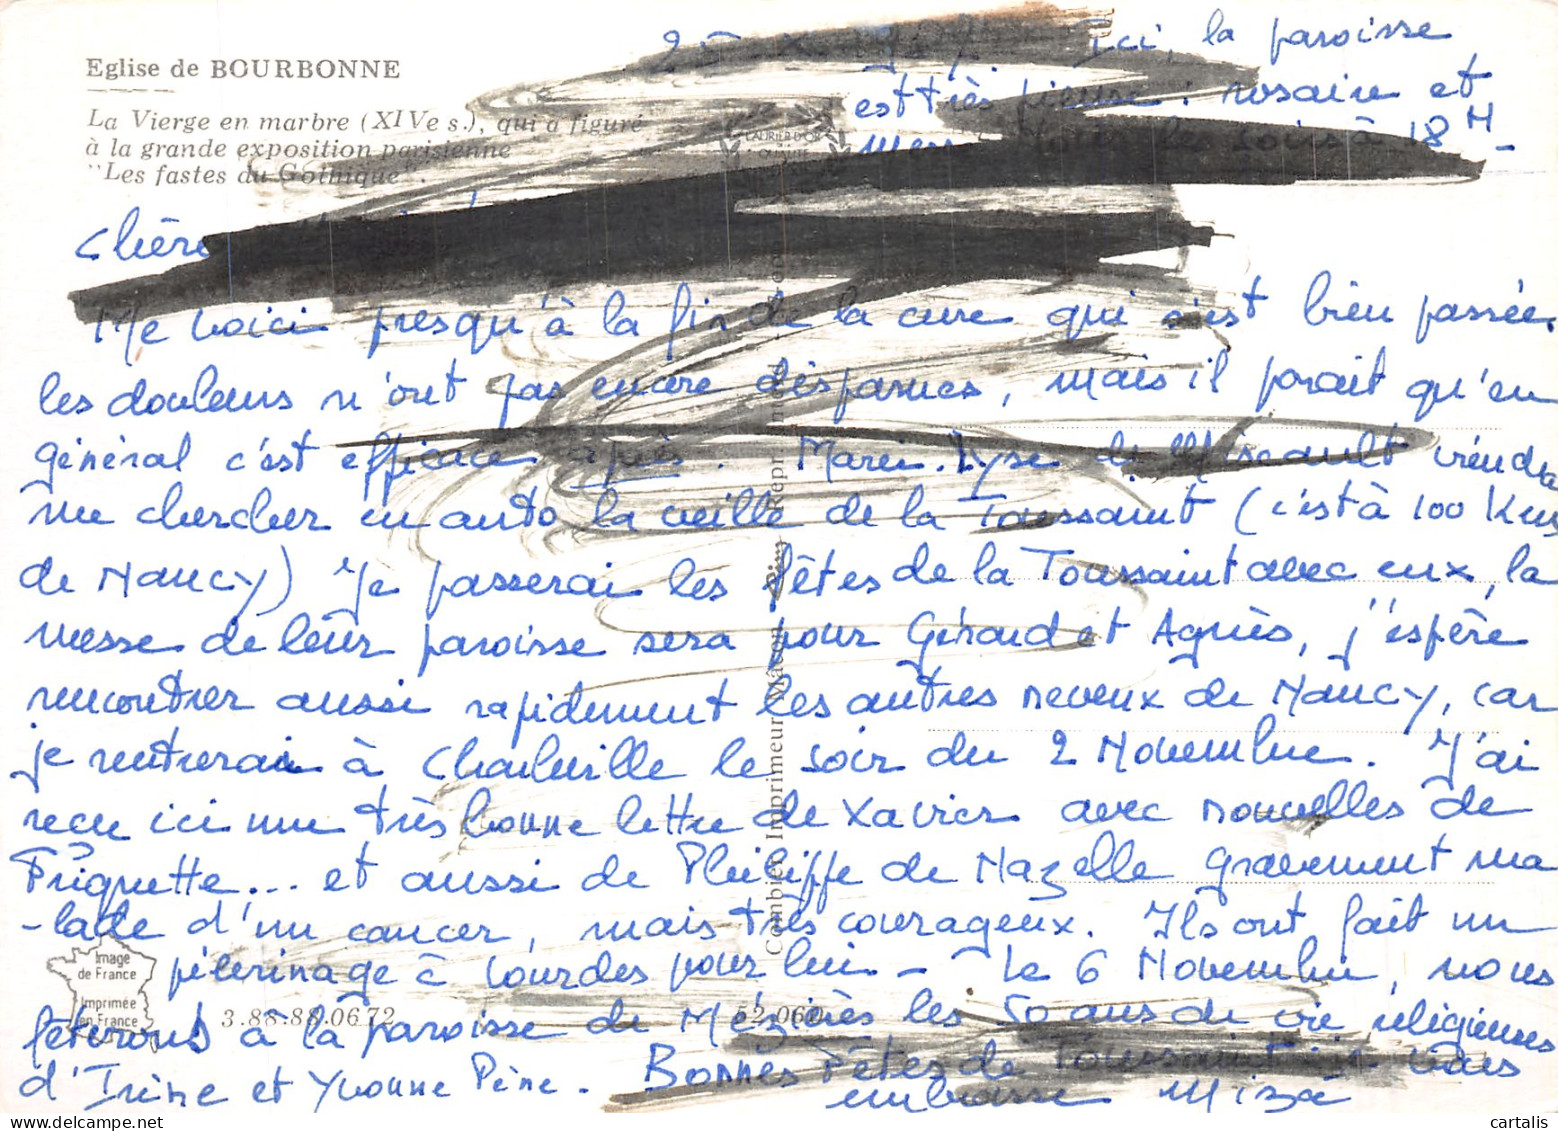 Eglise de BOURBONNE
La Vierge en marbre (XIVe s.), qui a figuré
à la grande exposition parisienne
"Les fastes du Gothique".
25 Ici, la paroisse
est très pieuse : rosaire et
Messe tous les soirs à 18 H -
Chère
Me voici presqu'à la fin de la cure qui s'est bien passée.
les douleurs n'ont pas encore disparues, mais il parait qu'en
général c'est efficace après. Marie-Lyse de viendra
me chercher en auto la veille de la Toussaint (c'est à 100 Kms
de Nancy) Je passerai les fêtes de la Toussaint avec eux, la
messe de leur paroisse sera pour Gérard et Agnès, j'espère
rencontrer aussi rapidement les autres neveux de Nancy, car
je rentrerai à Charleville le soir du 2 Novembre. J'ai
recu ici une très bonne lettre de Xavier avec nouvelles de
Friquette... et aussi de Philippe de Mazelle gravement ma
-lade d'un cancer, mais très courageux. Ils ont fait un
pèlerinage à Lourdes pour lui - Le 6 Novembre, nous
fêterons à la paroisse de Mézières les 50 ans de vie religieuses
d'Irène et Yvonne Pène. Bonnes Fêtes de Toussaint je vous
embrasse Miza
Image
de France
Imprimée
en France
3.88.88.0672
52.060
Combier Imprimeur Mâcon
LAURIER D'OR
cartalis